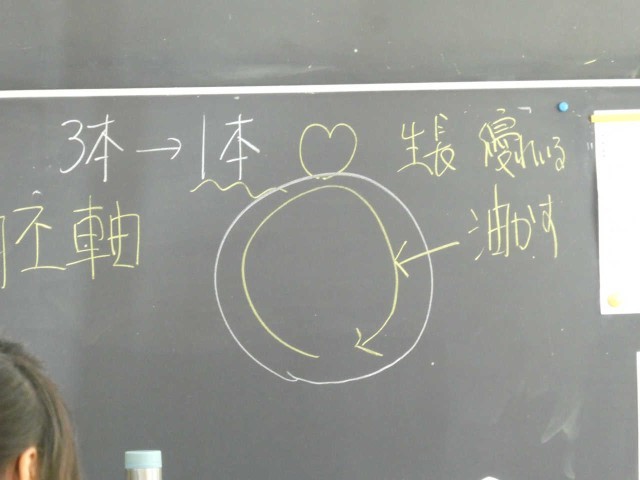 3本→1本 生長 優れいる
胚軸
油かす